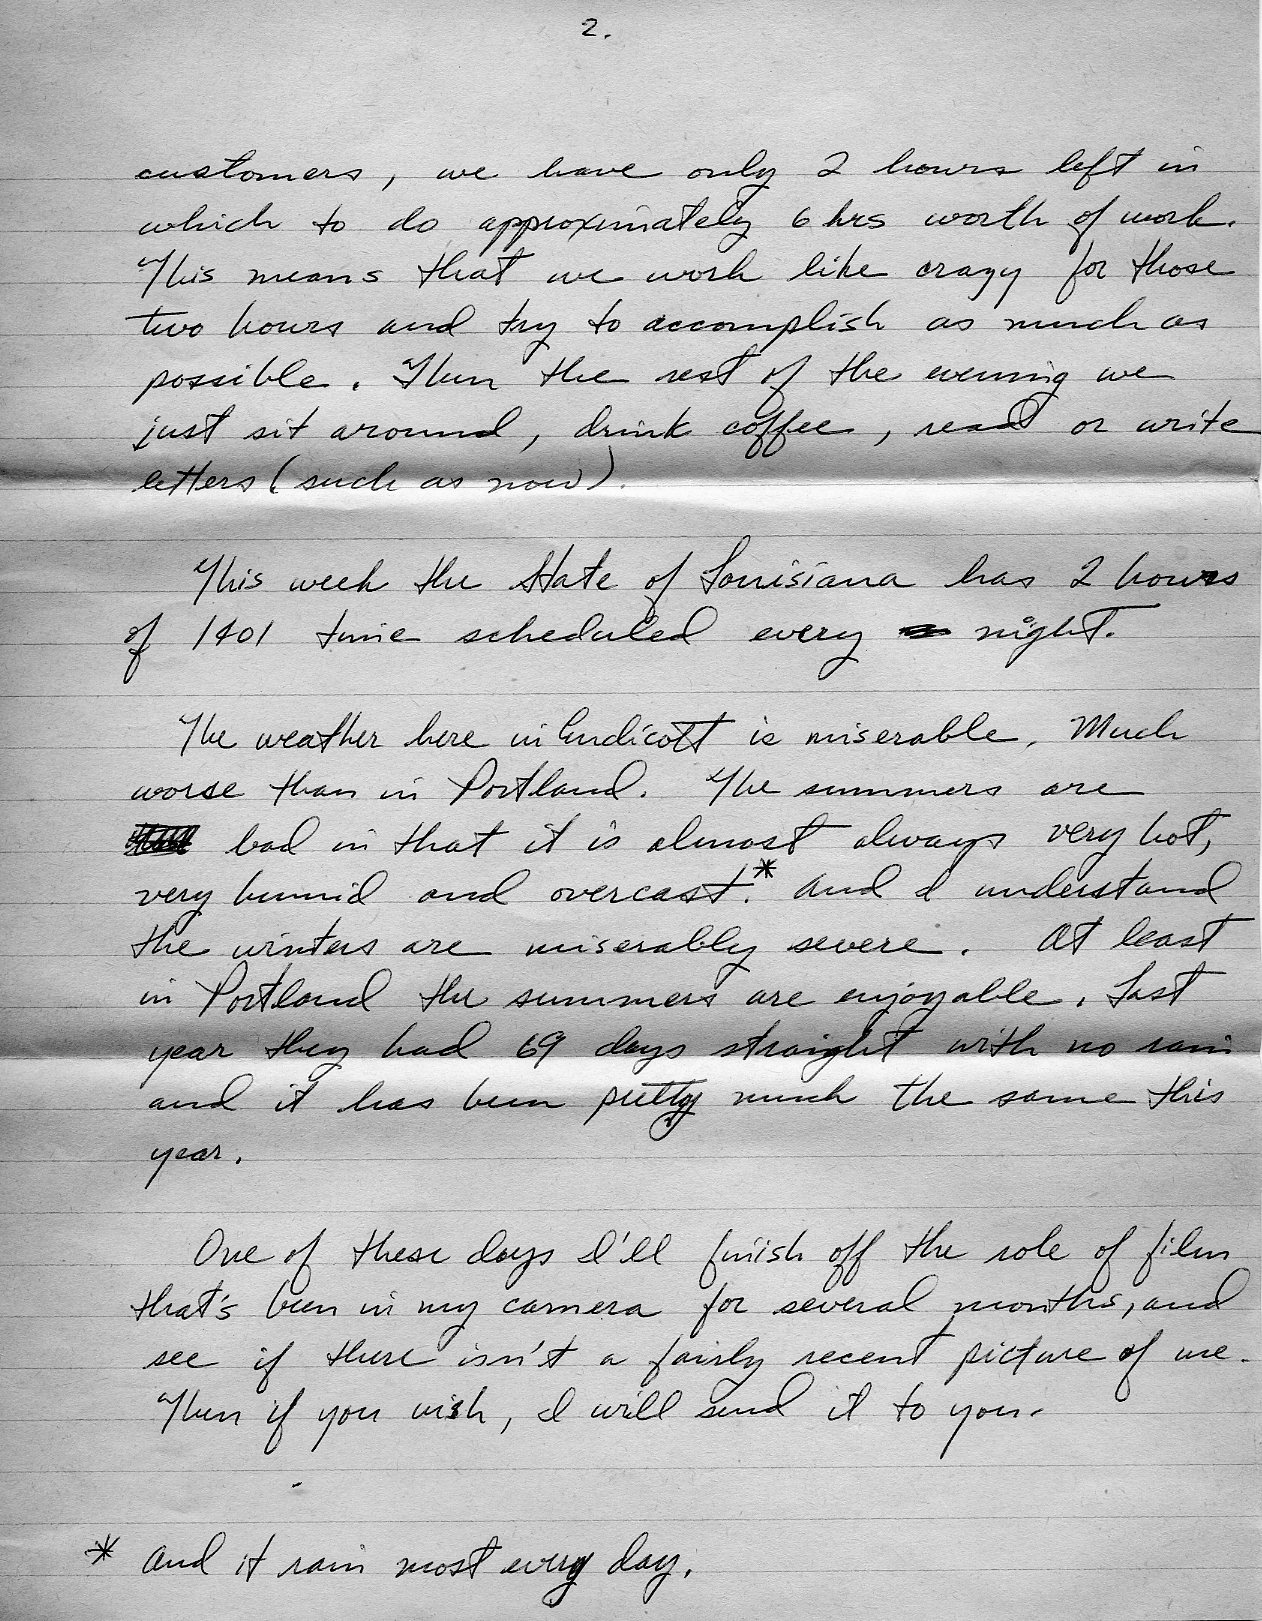 2.
customers, we have only 2 hours left in
which to do approximately 6 hrs worth of work.
This means that we work like crazy for those
two hours and try to accomplish as much as
possible. Then the rest of the evening we
just sit around, drink coffee, read or write
letters (such as now).
This week the State of Louisiana has 2 hours
of 1401 time scheduled every night.
The weather here in Endicott is miserable. Much
worse than in Portland. The summers are
bad in that it is almost always very hot,
very humid and overcast.* And I understand
the winters are miserably severe. At least
in Portland the summers are enjoyable. Last
year they had 69 days straight with no rain
and it has been pretty much the same this
year.
One of these days I'll finish off the role of film
that's been in my camera for several months, and
see if there isn't a fairly recent picture of me.
Then if you wish, I will send it to you.
* And it rain most every day.